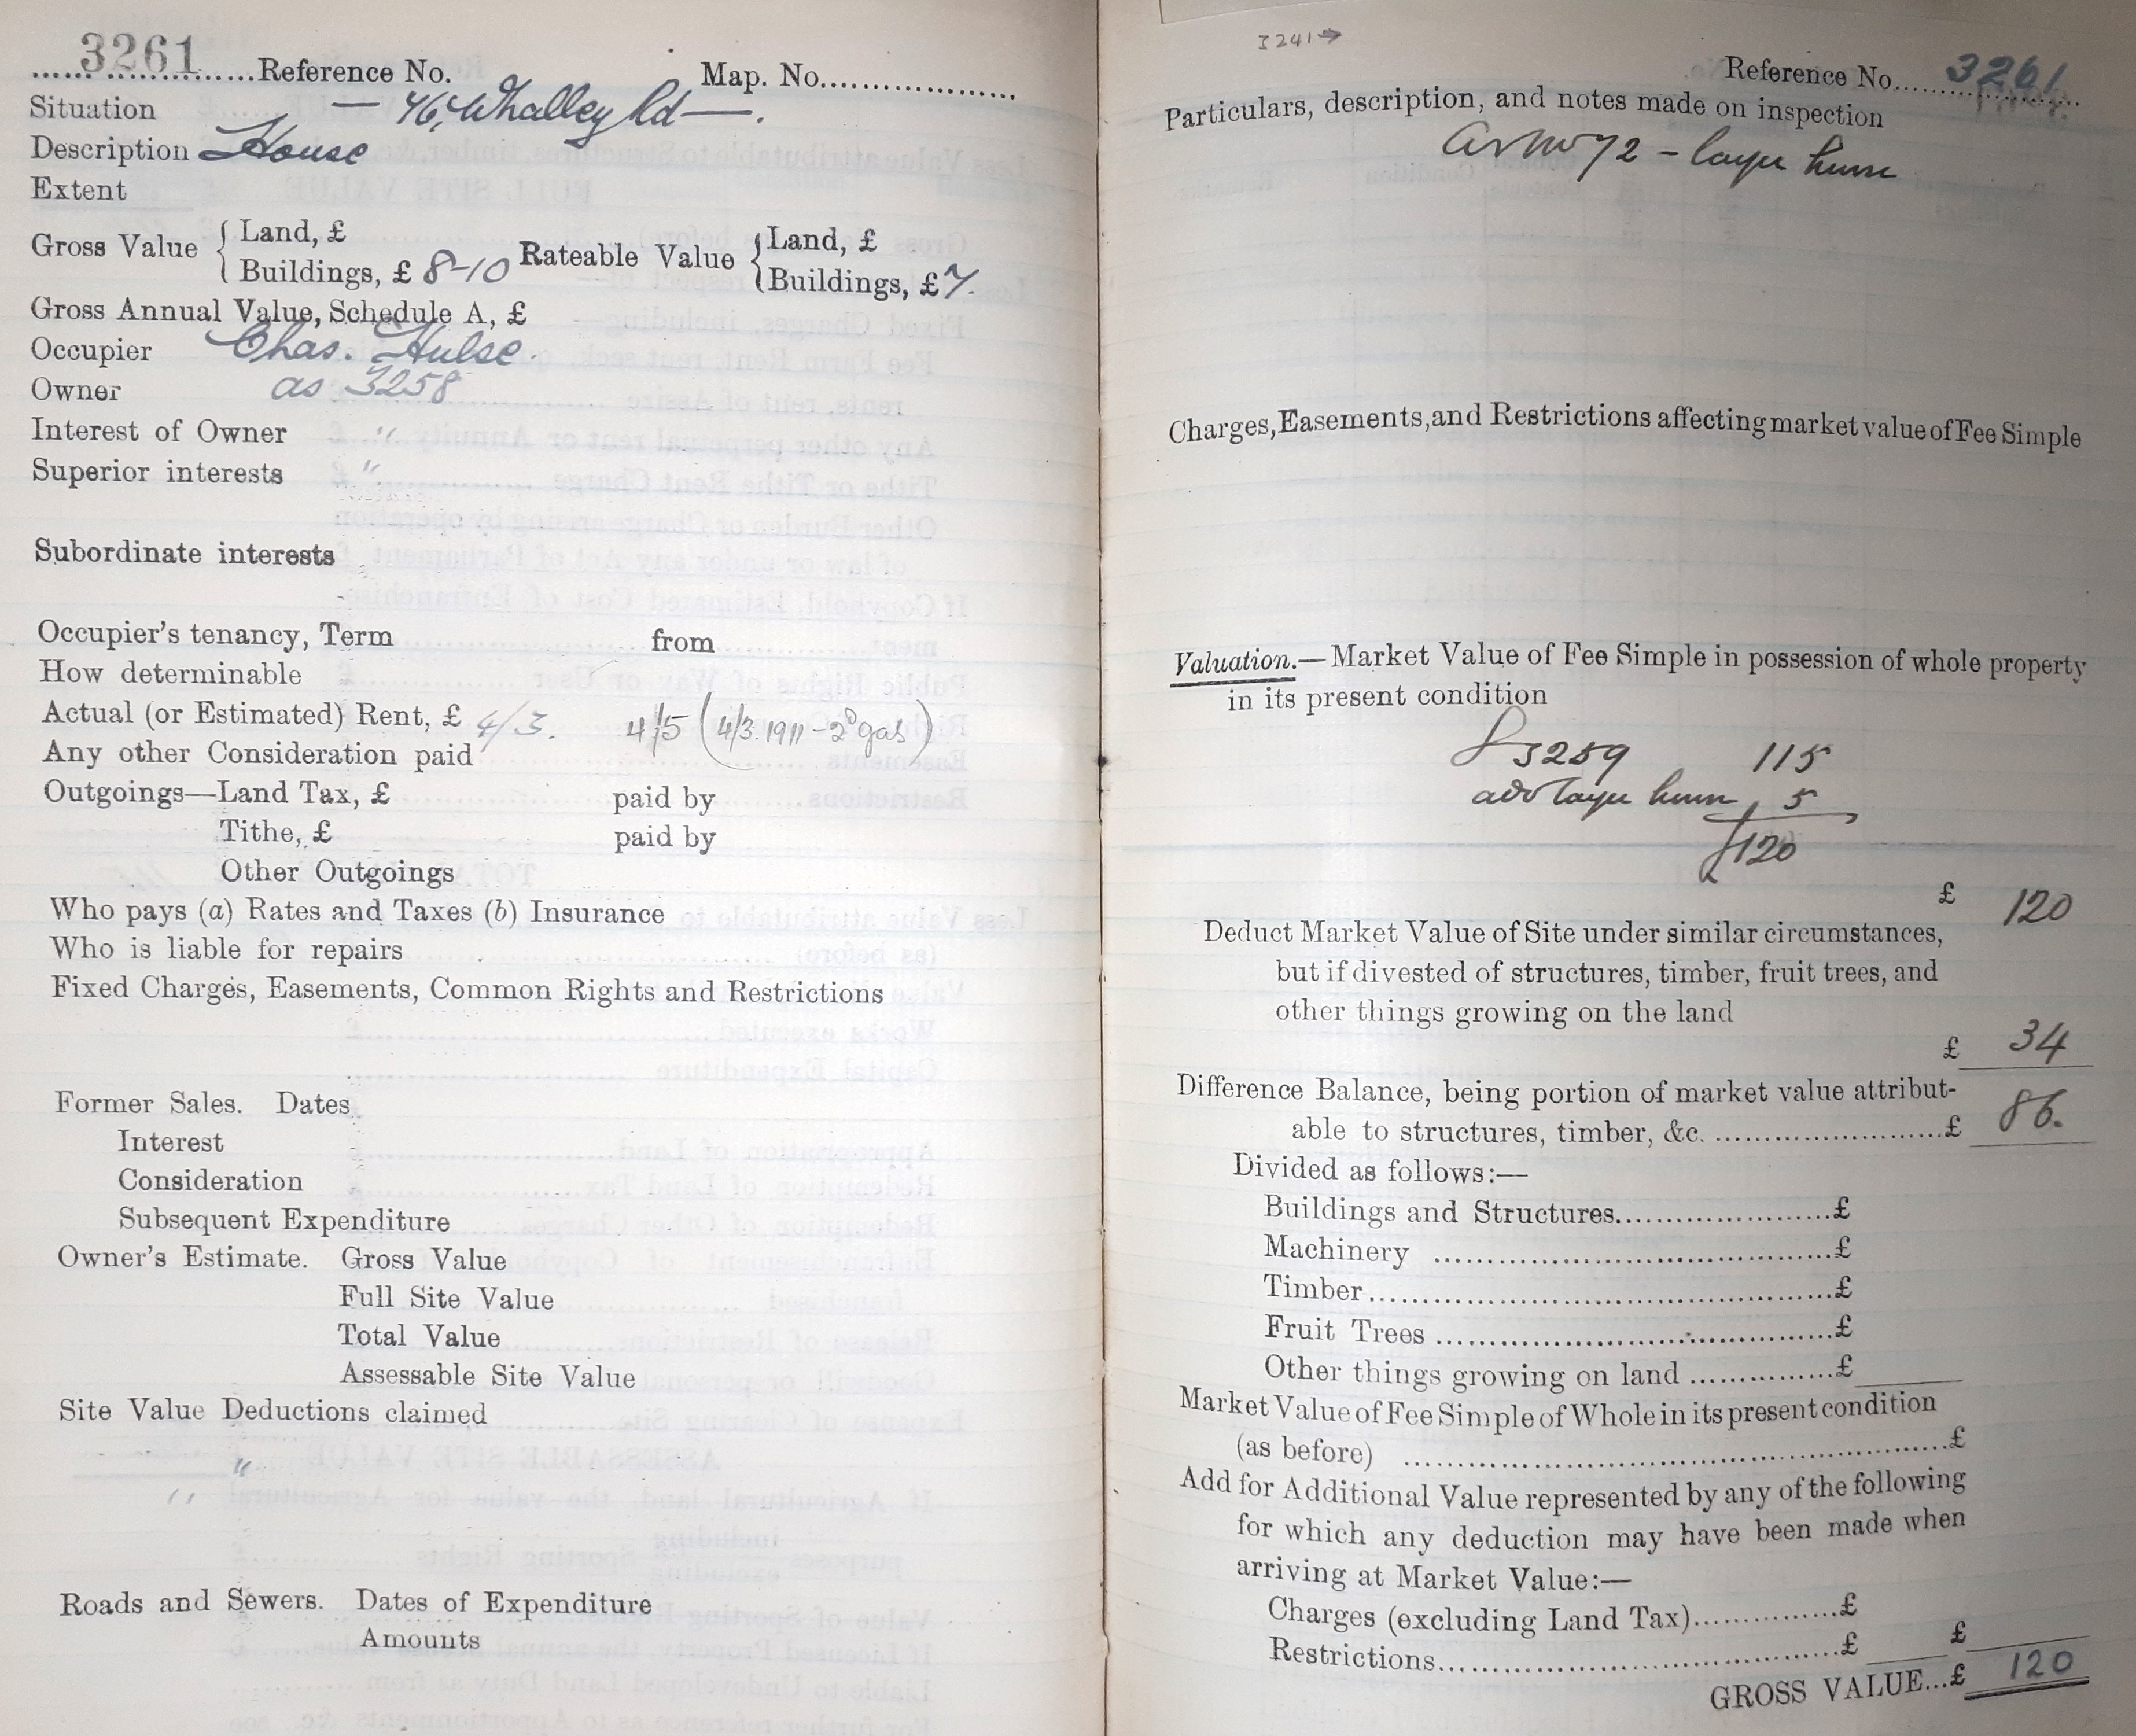 3261 Reference No. Map. No.
Situation — 46, Whalley Rd —.
Description House
Extent
Gross Value { Land, £
Buildings, £ 8-10
Rateable Value { Land, £
Buildings, £ 7.
Gross Annual Value, Schedule A, £
Occupier Chas. Hulse.
Owner as 3258
Interest of Owner "
Superior interests "
Subordinate interests
Occupier's tenancy, Term from
How determinable
Actual (or Estimated) Rent, £ 4/3. 4/5 (4/3. 1911 - 2D gas)
Any other Consideration paid
Outgoings—Land Tax, £ paid by
Tithe, £ paid by
Other Outgoings
Who pays (a) Rates and Taxes (b) Insurance
Who is liable for repairs
Fixed Charges, Easements, Common Rights and Restrictions
Former Sales. Dates
Interest
Consideration
Subsequent Expenditure
Owner's Estimate. Gross Value
Full Site Value
Total Value
Assessable Site Value
Site Value Deductions claimed
"
Roads and Sewers. Dates of Expenditure
Amounts
3241→
Reference No. 3261.
Particulars, description, and notes made on inspection
as no 72 - larger house
Charges, Easements, and Restrictions affecting market value of Fee Simple
Valuation.—Market Value of Fee Simple in possession of whole property
in its present condition
3259 115
add larger house 5
£120
£ 120
Deduct Market Value of Site under similar circumstances,
but if divested of structures, timber, fruit trees, and
other things growing on the land
£ 34
Difference Balance, being portion of market value attribut-
able to structures, timber, &c. £ 86.
Divided as follows:—
Buildings and Structures £
Machinery £
Timber £
Fruit Trees £
Other things growing on land £
Market Value of Fee Simple of Whole in its present condition
(as before) £
Add for Additional Value represented by any of the following
for which any deduction may have been made when
arriving at Market Value:—
Charges (excluding Land Tax) £
Restrictions £ £
GROSS VALUE...£ 120